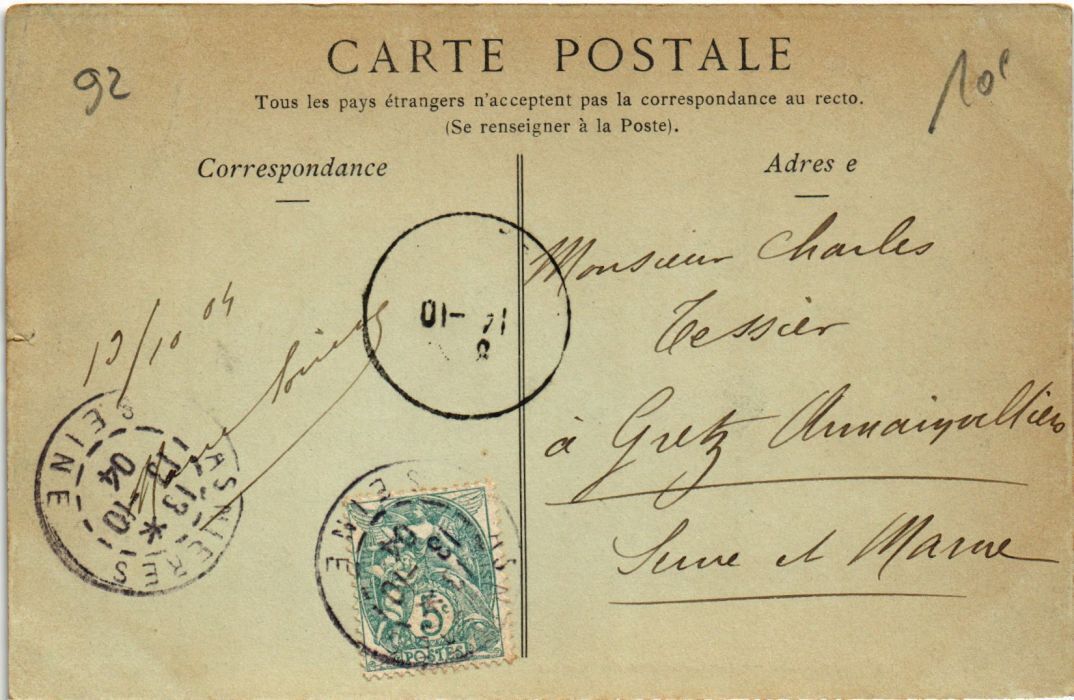 92
10f
CARTE POSTALE
Tous les pays étrangers n'acceptent pas la correspondance au recto.
(Se renseigner à la Poste).
Correspondance
Adres e
Monsieur Charles
Tessier
à Gretz Armainvilliers
Seine et Marne
13/10 04
14 -10
8
ASNIERES
SEINE
13 -10
04
SEINE
13
04
5
POSTES